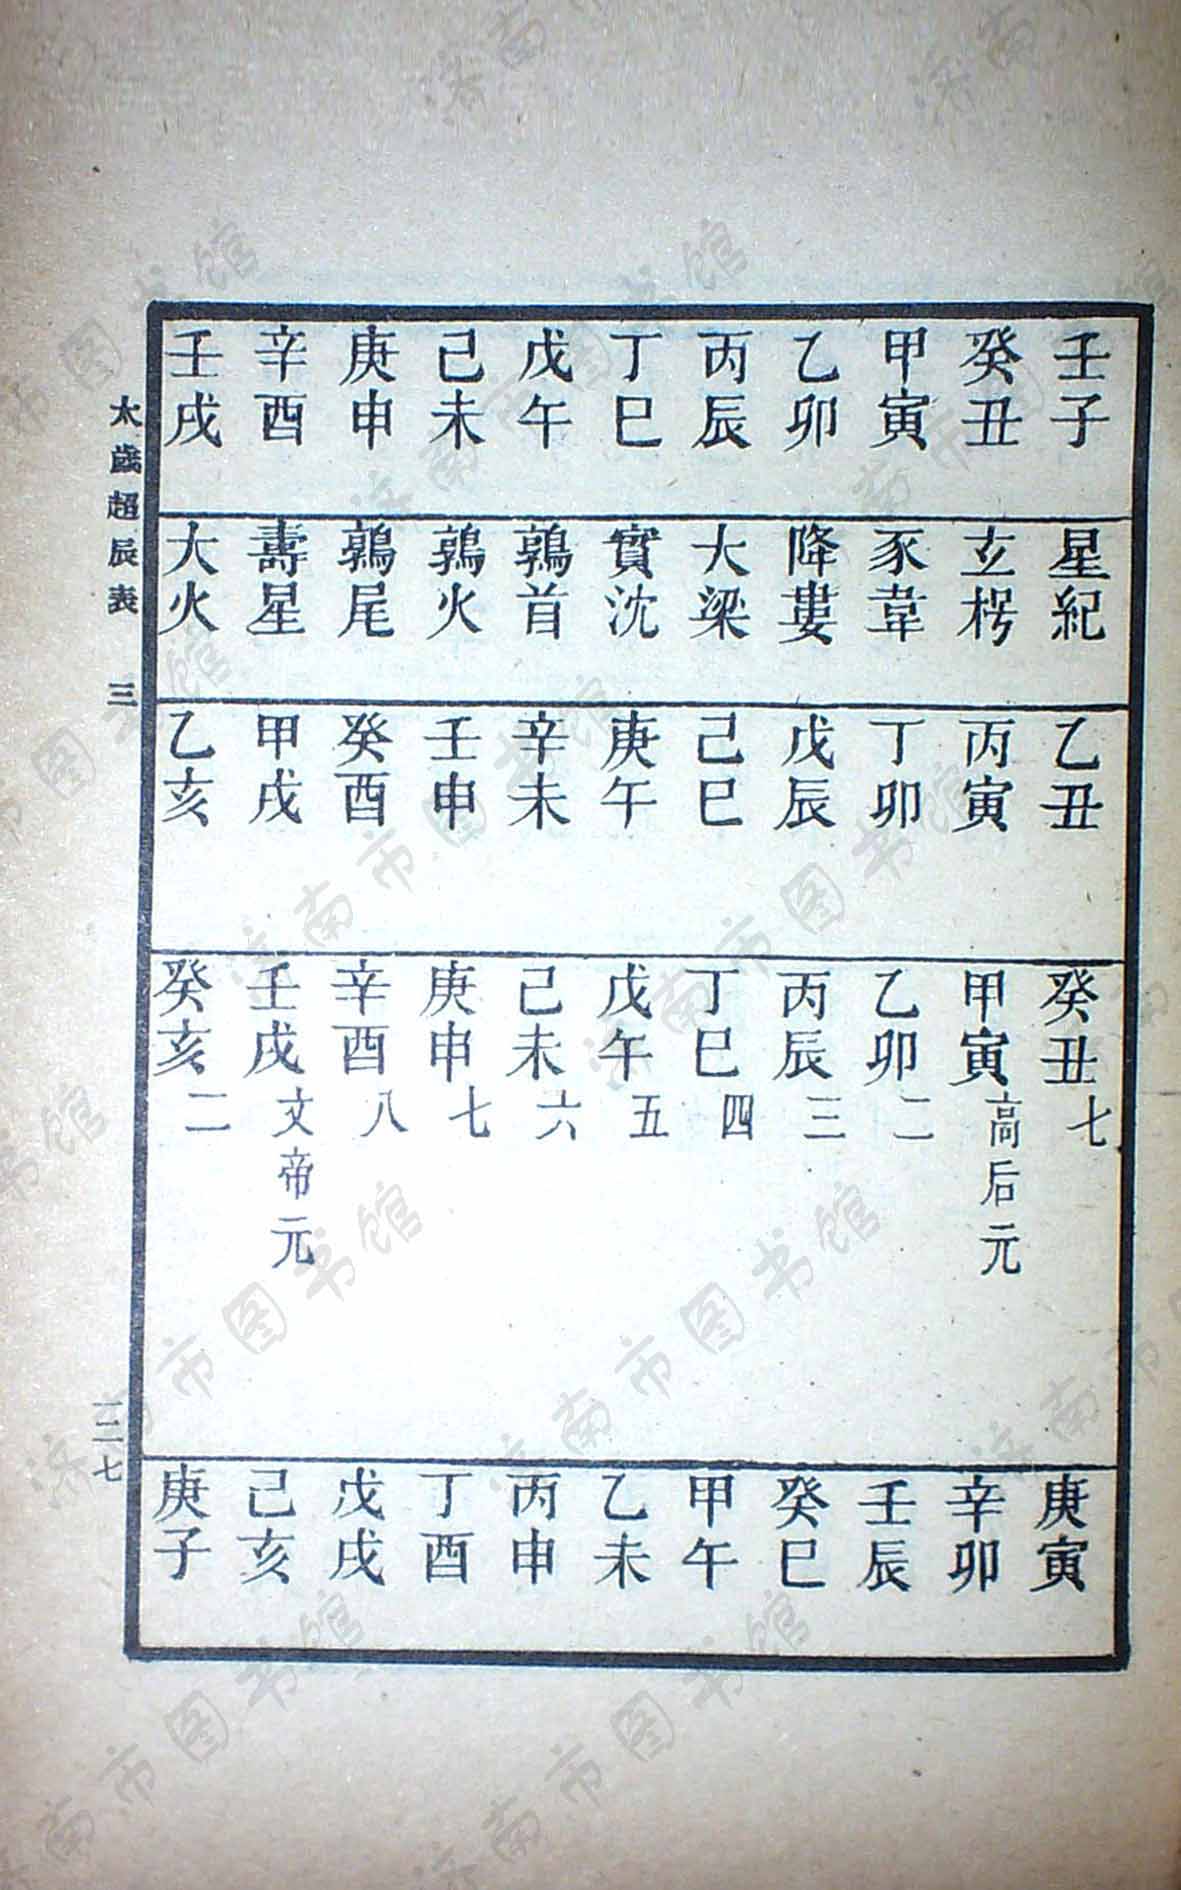 壬子 星紀 乙丑 癸丑七 庚寅
癸丑 玄枵 丙寅 甲寅高后元 辛卯
甲寅 豕韋 丁卯 乙卯二 壬辰
乙卯 降婁 戊辰 丙辰三 癸巳
丙辰 大梁 己巳 丁巳四 甲午
丁巳 實沈 庚午 戊午五 乙未
戊午 鶉首 辛未 己未六 丙申
己未 鶉火 壬申 庚申七 丁酉
庚申 鶉尾 癸酉 辛酉八 戊戌
辛酉 壽星 甲戌 壬戌文帝元 己亥
壬戌 大火 乙亥 癸亥二 庚子
太歲超辰表 三 一二七
济南市图书馆